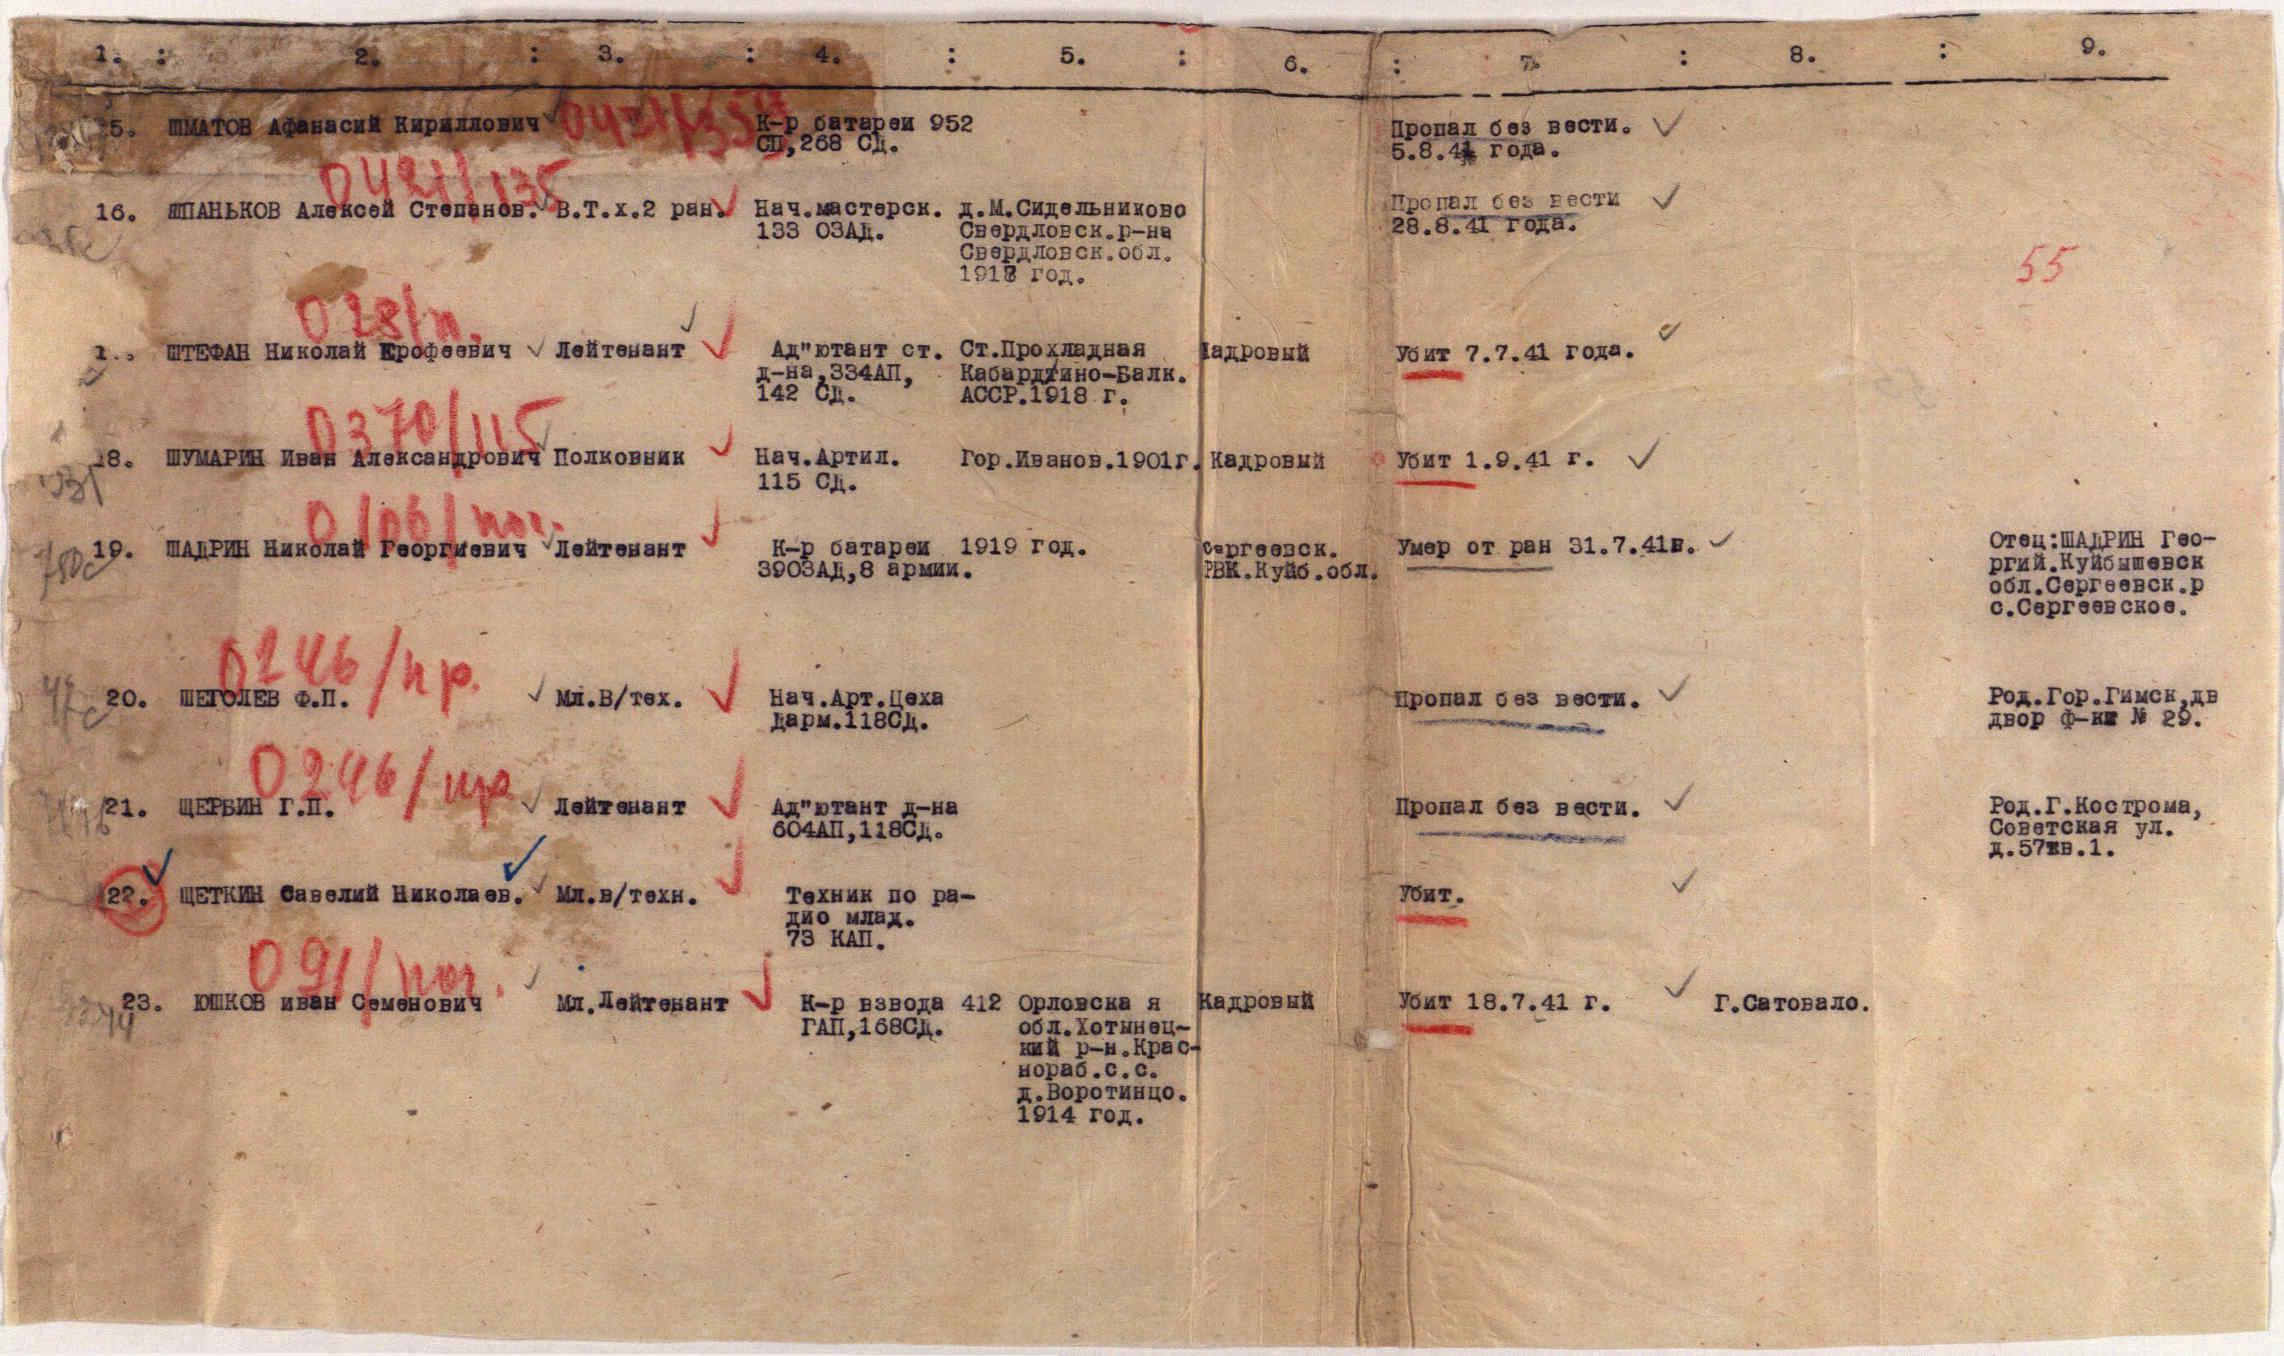 1. : 2. : 3. : 4. : 5. : 6. : 7. : 8. : 9.
5. ШМАТОВ Афанасий Кириллович К-р батареи 952 Пропал без вести.
СП,268 СД. 5.8.41 года.
0421/135
16. ШПАНЬКОВ Алексей Степанов. В.Т.х.2 ран. Нач.мастерск. д.М.Сидельниково Пропал без вести
133 ОЗАД. Свердловск.р-на 28.8.41 года.
Свердловск.обл.
1918 год.
55
028/п.
1. ШТЕФАН Николай Ерофеевич Лейтенант Ад"ютант ст. Ст.Прохладная Кадровый Убит 7.7.41 года.
д-на,334АП, Кабардино-Балк.
142 СД. АССР.1918 г.
0370/115
18. ШУМАРИН Иван Александрович Полковник Нач.Артил. Гор.Иванов.1901г. Кадровый Убит 1.9.41 г.
115 СД.
0106/пог.
19. ШАДРИН Николай Георгиевич Лейтенант К-р батареи 1919 год. Сергеевск. Умер от ран 31.7.41г. Отец:ШАДРИН Гео-
390ЗАД,8 армии. РВК.Куйб.обл. ргий.Куйбышевск
обл.Сергеевск.р
с.Сергеевское.
0246/пр.
20. ШЕГОЛЕВ Ф.П. Мл.В/тех. Нач.Арт.Цеха Пропал без вести. Род.Гор.Гимск,дв
дарм.118СД. двор ф-ки № 29.
0246/пр
21. ЩЕРБИН Г.П. Лейтенант Ад"ютант д-на Пропал без вести. Род.Г.Кострома,
604АП,118СД. Советская ул.
д.57кв.1.
22. ЩЕТКИН Савелий Николаев. Мл.в/техн. Техник по ра- Убит.
дио млад.
73 КАП.
091/пог.
23. ЮШКОВ иван Семенович Мл.Лейтенант К-р взвода 412 Орловска я Кадровый Убит 18.7.41 г. Г.Сатовало.
ГАП,168СД. обл.Хотынец-
кий р-н.Крас-
нораб.с.с.
д.Воротинцо.
1914 год.